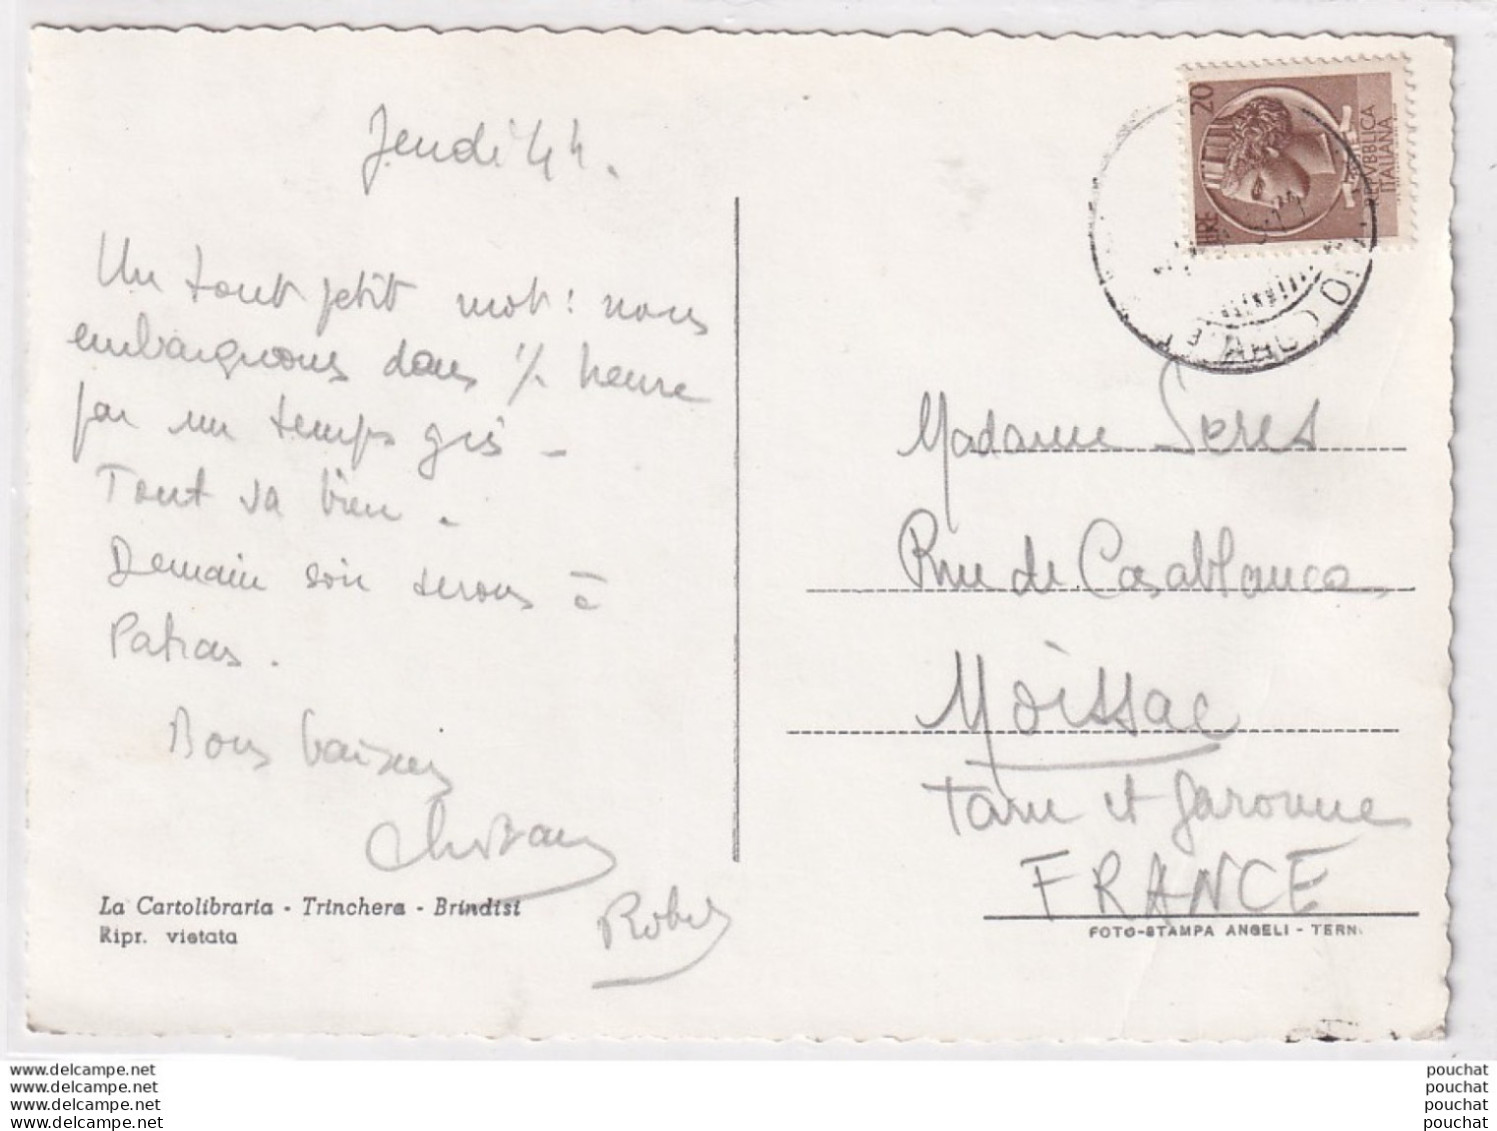 Jeudi 4 h.
Un tout petit mot : nous
embarquons dans 1/2 heure
par un temps gris -
Tout va bien -
Demain soir serons à
Patras.
Bons baisers
Christian
Robert
La Cartolibraria - Trinchera - Brindisi
Ripr. vietata
20
LIRE
REPVBBLICA
ITALIANA
Madame
Rue de Casablanca
Moissac
Tarn et Garonne
FRANCE
FOTO-STAMPA ANGELI - TERNI
www.delcampe.net
www.delcampe.net
www.delcampe.net
www.delcampe.net
pouchat
pouchat
pouchat
pouchat